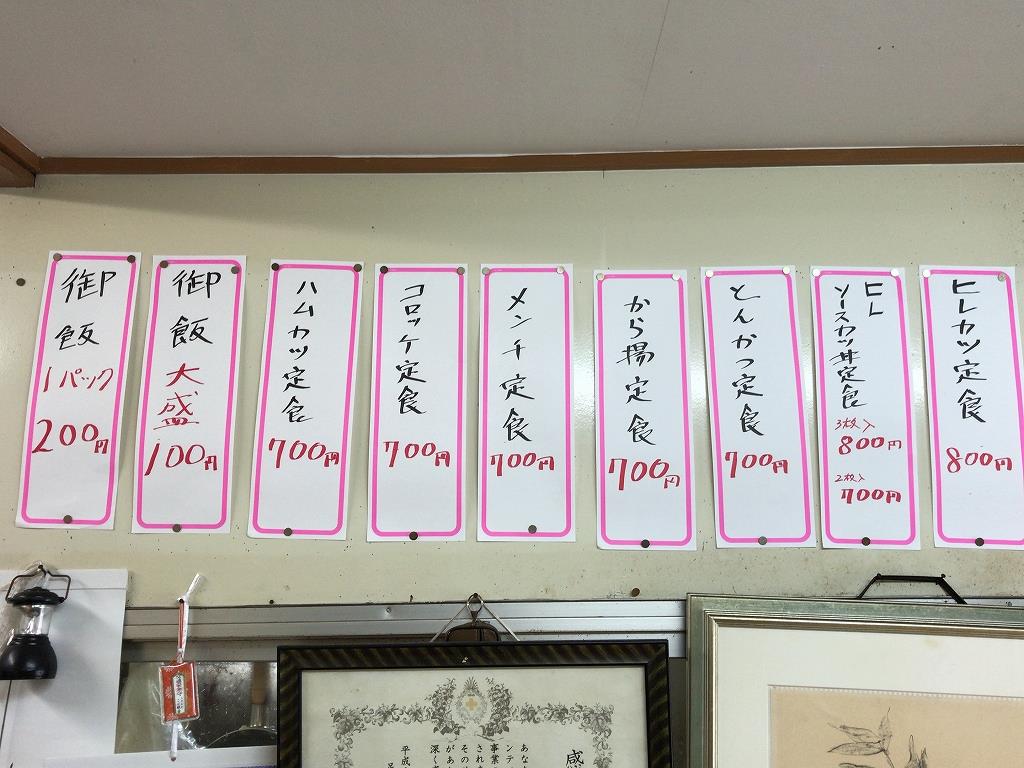 ヒレカツ定食
800円
ヒレ
ソースカツ丼定食
3枚入
800円
2枚入
700円
とんかつ定食
700円
から揚定食
700円
メンチ定食
700円
コロッケ定食
700円
ハムカツ定食
700円
御飯大盛
100円
御飯
1パック
200円
感
あなた
ンテ
事業
され
その
があ
深く
平成